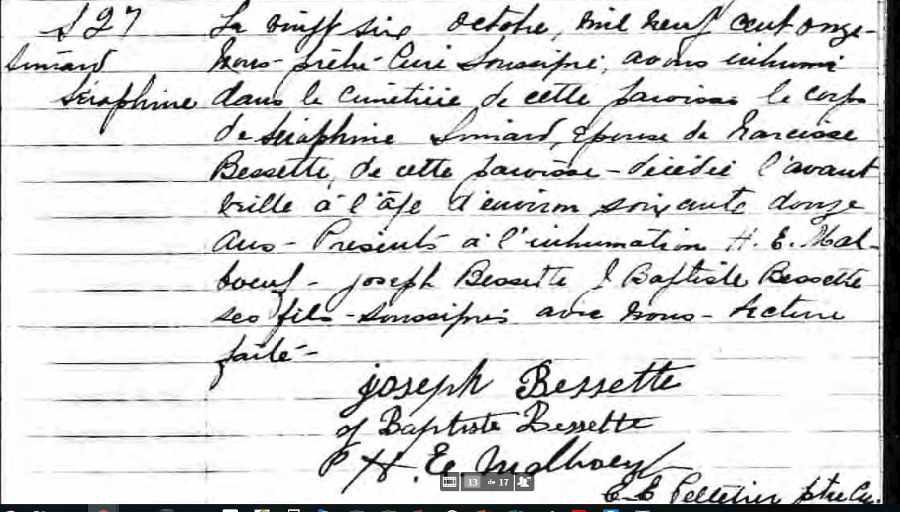 S 27
Simard
Séraphine
Le vingt six octobre, mil neuf cent onze-
Nous-prêtre-Curé Soussigné, avons inhumé
dans le cimetière de cette paroisse le corps
de Séraphine Simard, Epouse de Narcisse
Bessette, de cette paroisse - décédée l'avant
veille à l'âge d'environ soixante douze
ans - Présents à l'inhumation H. E. Mal-
boeuf - joseph Bessette J Baptiste Bessette
ses fils - soussignés avec nous - Lecture
faite -
joseph Bessette
J Baptiste Bessette
H. E. Malboeuf
E. E Pelletier ptre Cu.
13 de 17